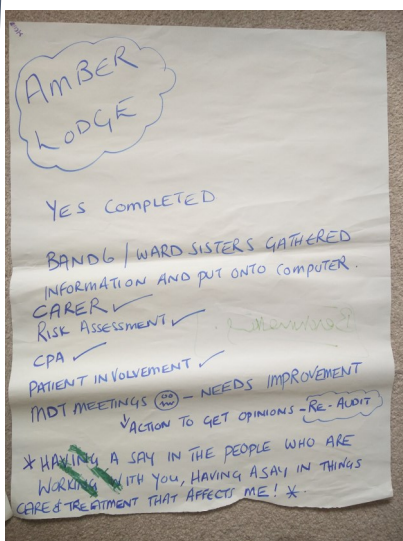 AMBER
LODGE
YES COMPLETED
BAND6 / WARD SISTERS GATHERED
INFORMATION AND PUT ONTO COMPUTER.
CARER ✓
RISK ASSESSMENT ✓
CPA ✓
PATIENT INVOLVEMENT ✓
MDT MEETINGS - NEEDS IMPROVEMENT
↓ACTION TO GET OPINIONS - RE-AUDIT
* HAVING A SAY IN THE PEOPLE WHO ARE
WORKING WITH YOU, HAVING A SAY IN THINGS
CARE & TREATMENT THAT AFFECTS ME! *.